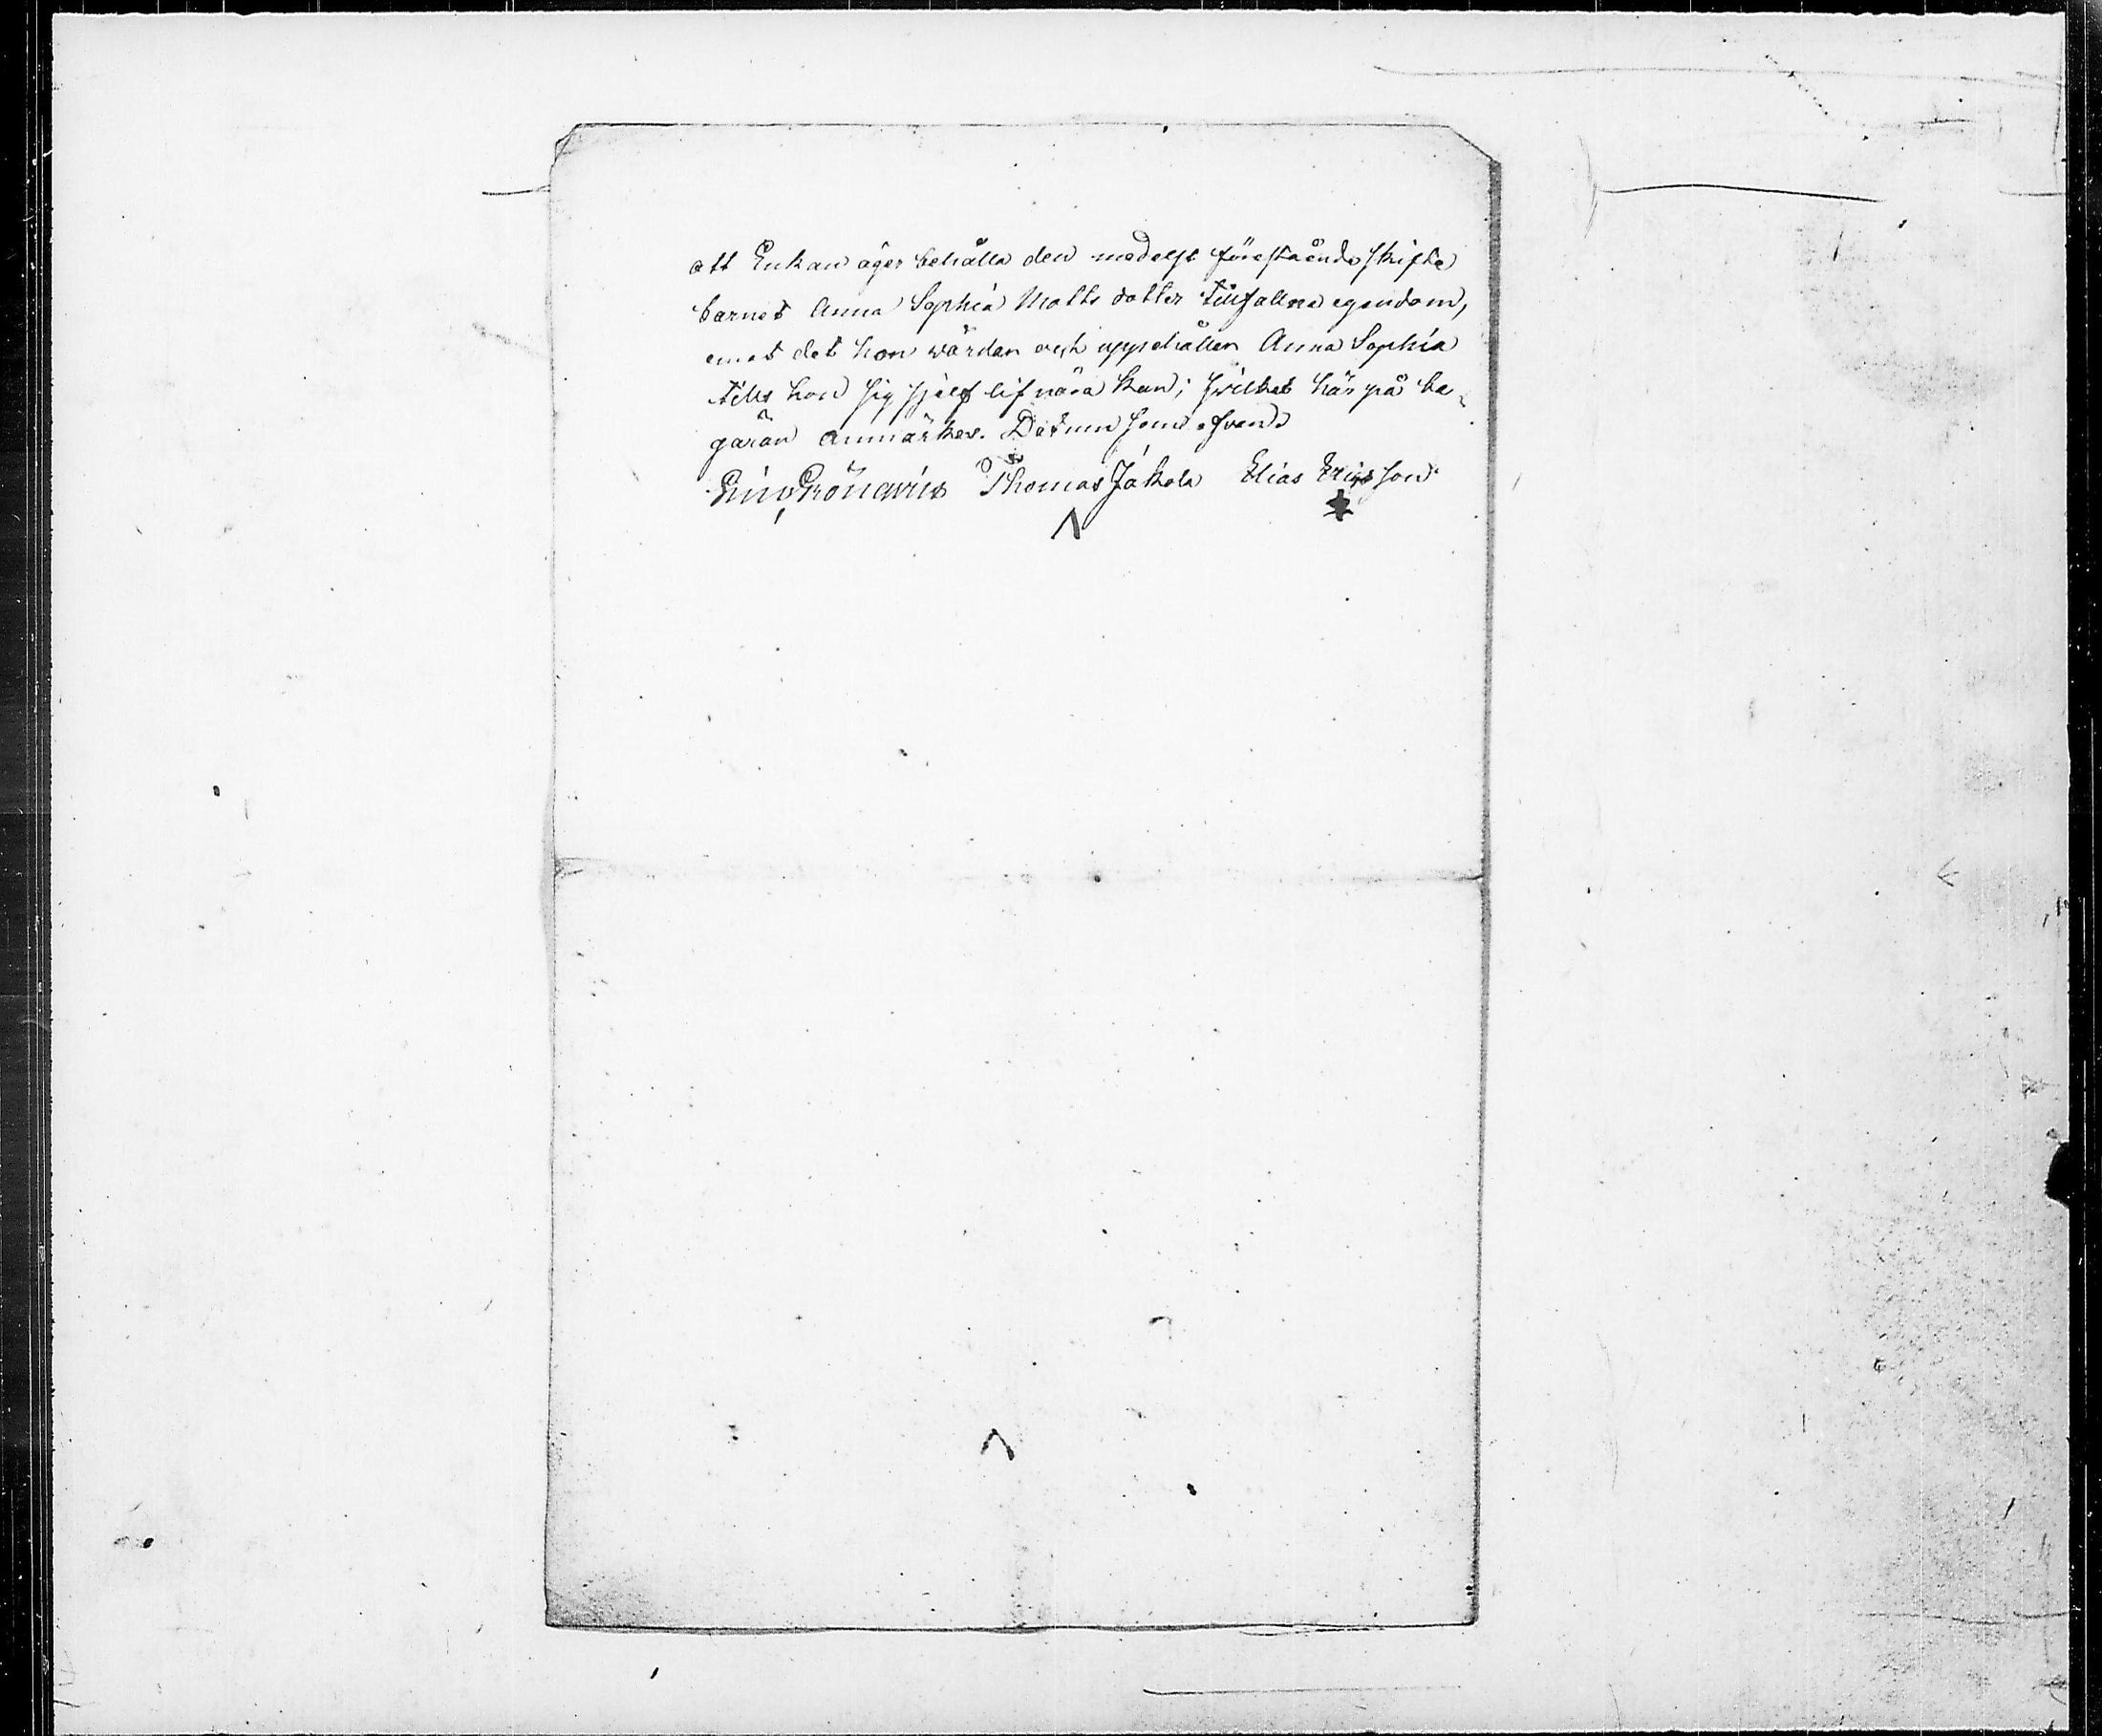 att Enkan äger behålla den medelst förestående skifte
barnet Anna Sophia Matts dotter tillfallna egendom,
emot det hon vårdar och uppehåller Anna Sophia
tills hon sig sjelf lifnära kan; hvilket här på be-
gäran anmärkes. Datum som ofvan.
Thomas Jåkola Elias Ericsson